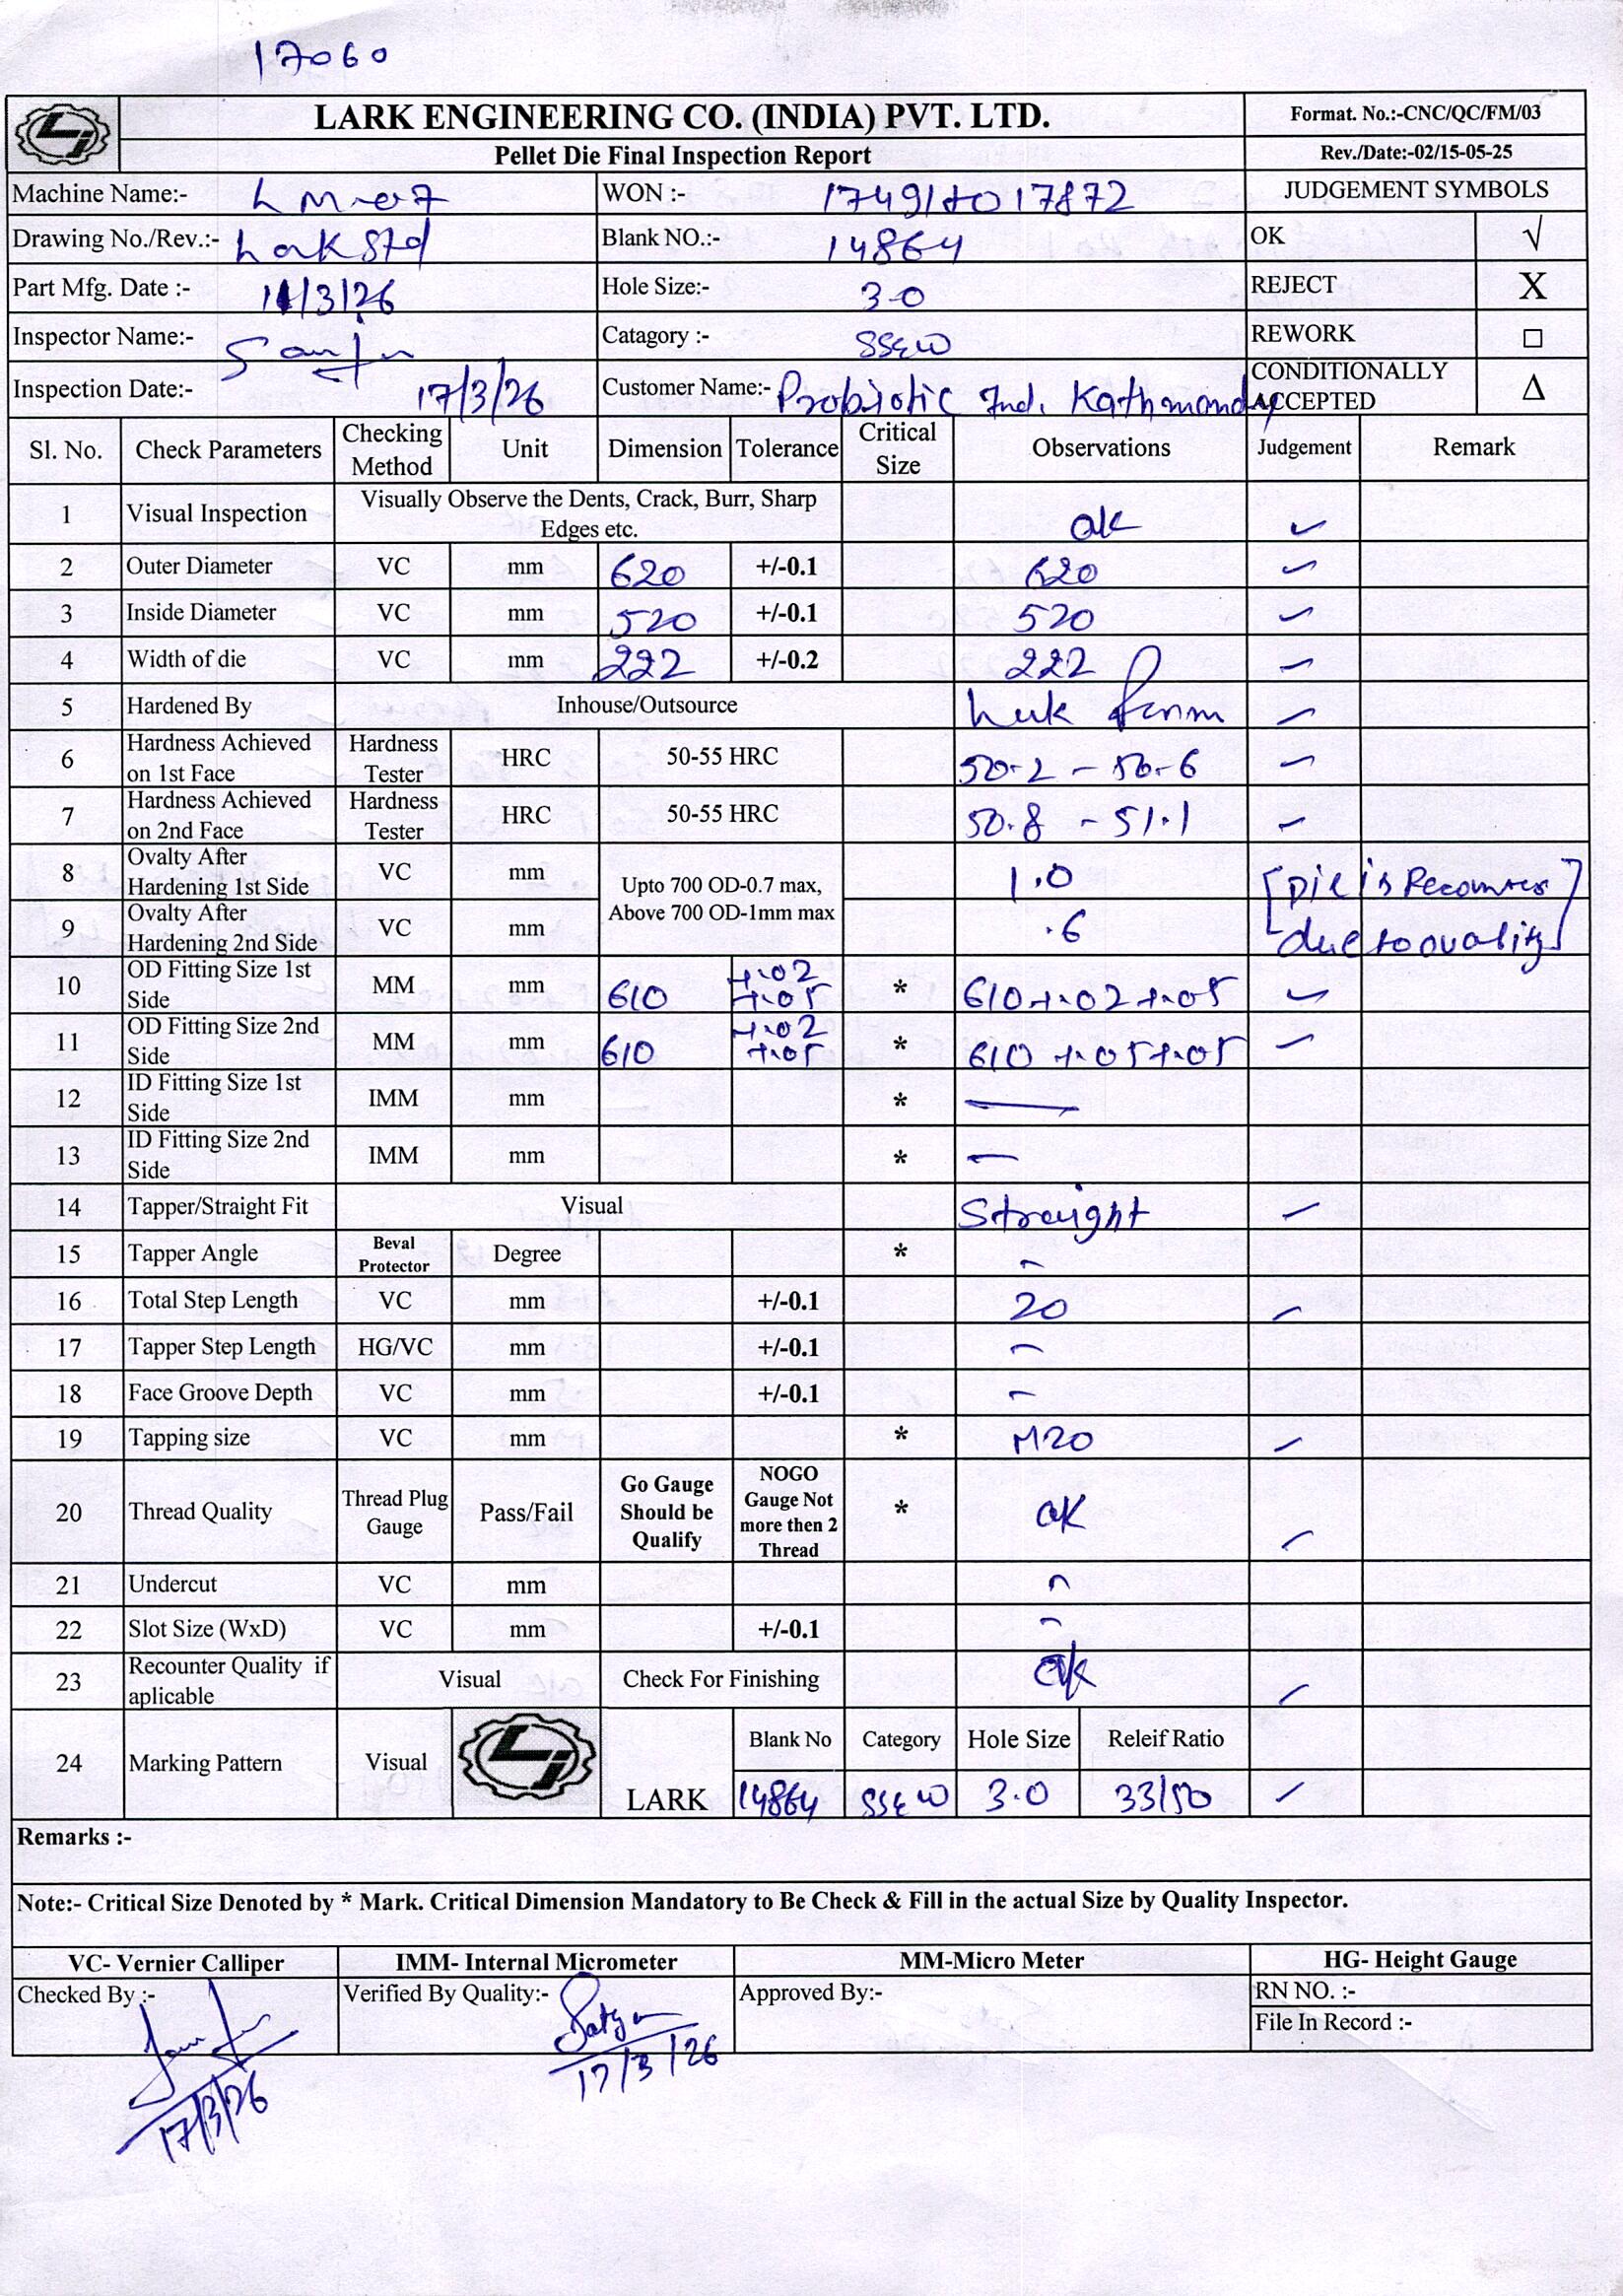 17060
LARK ENGINEERING CO. (INDIA) PVT. LTD.
Format. No.:-CNC/QC/FM/03
Pellet Die Final Inspection Report
Rev./Date:-02/15-05-25
Machine Name:- LM-07 WON :- 17491 to 17872 JUDGEMENT SYMBOLS
Drawing No./Rev.:- Lark Std Blank NO.:- 14864 OK √
Part Mfg. Date :- 11/3/26 Hole Size:- 3.0 REJECT X
Inspector Name:- Sanju Catagory :- SSEW REWORK □
Inspection Date:- 17/3/26 Customer Name:- Probiotic Ind. Kathmandu CONDITIONALLY ACCEPTED Δ
Sl. No. Check Parameters Checking Method Unit Dimension Tolerance Critical Size Observations Judgement Remark
1 Visual Inspection Visually Observe the Dents, Crack, Burr, Sharp Edges etc. ok ✓
2 Outer Diameter VC mm 620 +/-0.1 620 ✓
3 Inside Diameter VC mm 520 +/-0.1 520 ✓
4 Width of die VC mm 222 +/-0.2 222 ✓
5 Hardened By Inhouse/Outsource ✓
6 Hardness Achieved on 1st Face Hardness Tester HRC 50-55 HRC 50.2 - 50.6 ✓
7 Hardness Achieved on 2nd Face Hardness Tester HRC 50-55 HRC 50.8 - 51.1 ✓
8 Ovalty After Hardening 1st Side VC mm Upto 700 OD-0.7 max, Above 700 OD-1mm max 1.0 [Die is
9 Ovalty After Hardening 2nd Side VC mm .6 due to ovality]
10 OD Fitting Size 1st Side MM mm 610 +.02 +.05 * 610 +.02 +.05 ✓
11 OD Fitting Size 2nd Side MM mm 610 +.02 +.05 * 610 +.05 +.05 ✓
12 ID Fitting Size 1st Side IMM mm * —
13 ID Fitting Size 2nd Side IMM mm * —
14 Tapper/Straight Fit Visual Straight ✓
15 Tapper Angle Beval Protector Degree * -
16 Total Step Length VC mm +/-0.1 20 ✓
17 Tapper Step Length HG/VC mm +/-0.1 -
18 Face Groove Depth VC mm +/-0.1 -
19 Tapping size VC mm * M20 ✓
20 Thread Quality Thread Plug Gauge Pass/Fail Go Gauge Should be Qualify NOGO Gauge Not more then 2 Thread * ok ✓
21 Undercut VC mm -
22 Slot Size (WxD) VC mm +/-0.1 -
23 Recounter Quality if aplicable Visual Check For Finishing ok ✓
24 Marking Pattern Visual LARK Blank No Category Hole Size Releif Ratio
14864 SSEW 3.0 33/50 ✓
Remarks :-
Note:- Critical Size Denoted by * Mark. Critical Dimension Mandatory to Be Check & Fill in the actual Size by Quality Inspector.
VC- Vernier Calliper IMM- Internal Micrometer MM-Micro Meter HG- Height Gauge
Checked By :- Verified By Quality:- Satya Approved By:- RN NO. :-
File In Record :-
17/3/26 17/3/26